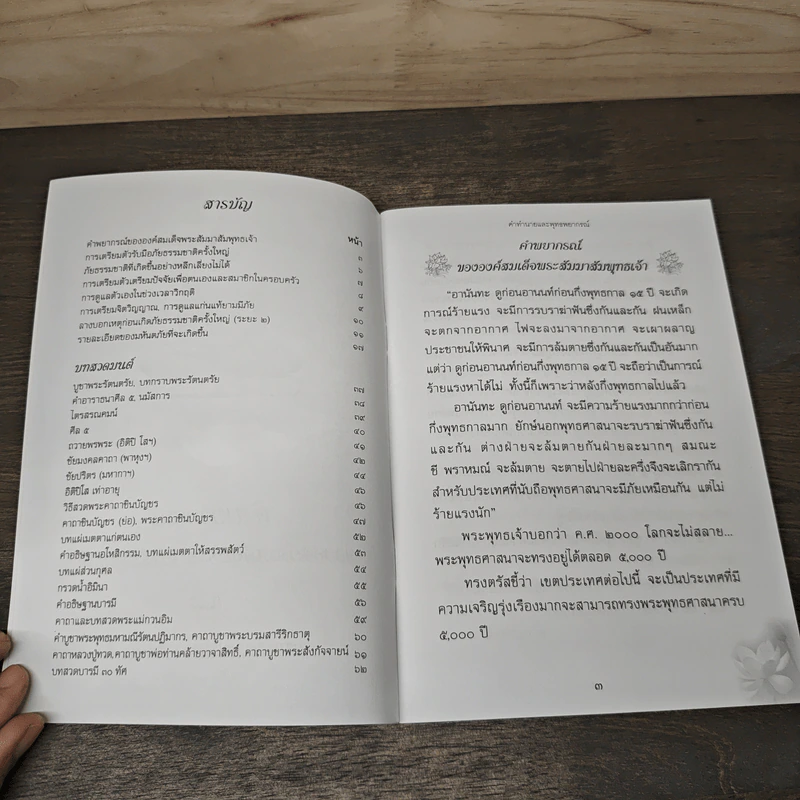 สารบัญ
หน้า
คำพยากรณ์ขององค์สมเด็จพระสัมมาสัมพุทธเจ้า ๓
การเตรียมตัวรับมือภัยธรรมชาติครั้งใหญ่ ๖
ภัยธรรมชาติที่เกิดขึ้นอย่างหลีกเลี่ยงไม่ได้ ๗
การเตรียมตัวเตรียมปัจจัยเพื่อตนเองและสมาชิกในครอบครัว ๘
การดูแลตัวเองในช่วงเวลาวิกฤติ ๙
การเตรียมจิตวิญญาณ, การดูแลแก่นแท้ยามมีภัย ๑๐
ลางบอกเหตุก่อนเกิดภัยธรรมชาติครั้งใหญ่ (ระยะ ๒) ๑๑
รายละเอียดของมหันตภัยที่จะเกิดขึ้น ๑๗
บทสวดมนต์
บูชาพระรัตนตรัย, บทกราบพระรัตนตรัย ๓๗
คำอาราธนาศีล ๕, นมัสการ ๓๘
ไตรสรณคมน์ ๓๙
ศีล ๕ ๔๐
ถวายพรพระ (อิติปิ โสฯ) ๔๑
ชัยมงคลคาถา (พาหุงฯ) ๔๒
ชัยปริตร (มหากาฯ) ๔๔
อิติปิโส เท่าอายุ ๔๖
วิธีสวดพระคาถาชินบัญชร ๔๖
คาถาชินบัญชร (ย่อ), พระคาถาชินบัญชร ๔๗
บทแผ่เมตตาแก่ตนเอง ๕๒
คำอธิษฐานอโหสิกรรม, บทแผ่เมตตาให้สรรพสัตว์ ๕๓
บทแผ่ส่วนกุศล ๕๔
กรวดน้ำอิมินา ๕๕
คำอธิษฐานบารมี ๕๖
คาถาและบทสวดพระแม่กวนอิม ๕๙
คำบูชาพระพุทธมหามณีรัตนปฏิมากร, คาถาบูชาพระบรมสารีริกธาตุ ๖๐
คาถาหลวงปู่ทวด,คาถาบูชาพ่อท่านคล้ายวาจาสิทธิ์, คาถาบูชาพระสังกัจจายน์ ๖๑
บทสวดบารมี ๓๐ ทัศ ๖๒
คำทำนายและพุทธพยากรณ์
คำพยากรณ์
ขององค์สมเด็จพระสัมมาสัมพุทธเจ้า
"อานันทะ ดูก่อนอานนท์ก่อนกึ่งพุทธกาล ๑๕ ปี จะเกิด
การณ์ร้ายแรง จะมีการรบราฆ่าฟันซึ่งกันและกัน ฝนเหล็ก
จะตกจากอากาศ ไฟจะลงมาจากอากาศ จะเผาผลาญ
ประชาชนให้พินาศ จะมีการล้มตายซึ่งกันและกันเป็นอันมาก
แต่ว่า ดูก่อนอานนท์ก่อนกึ่งพุทธกาล ๑๕ ปี จะถือว่าเป็นการณ์
ร้ายแรงหาได้ไม่ ทั้งนี้ก็เพราะว่าหลังกึ่งพุทธกาลไปแล้ว
อานันทะ ดูก่อนอานนท์ จะมีความร้ายแรงมากกว่าก่อน
กึ่งพุทธกาลมาก ยักษ์นอกพุทธศาสนาจะรบราฆ่าฟันซึ่งกัน
และกัน ต่างฝ่ายจะล้มตายกันฝ่ายละมากๆ สมณะ
ชี พราหมณ์ จะล้มตาย จะตายไปฝ่ายละครึ่งจึงจะเลิกรากัน
สำหรับประเทศที่นับถือพุทธศาสนาจะมีภัยเหมือนกัน แต่ไม่
ร้ายแรงนัก"
พระพุทธเจ้าบอกว่า ค.ศ. ๒๐๐๐ โลกจะไม่สลาย...
พระพุทธศาสนาจะทรงอยู่ได้ตลอด ๕,๐๐๐ ปี
ทรงตรัสชี้ว่า เขตประเทศต่อไปนี้ จะเป็นประเทศที่มี
ความเจริญรุ่งเรืองมากจะสามารถทรงพระพุทธศาสนาครบ
๕,๐๐๐ ปี
๓